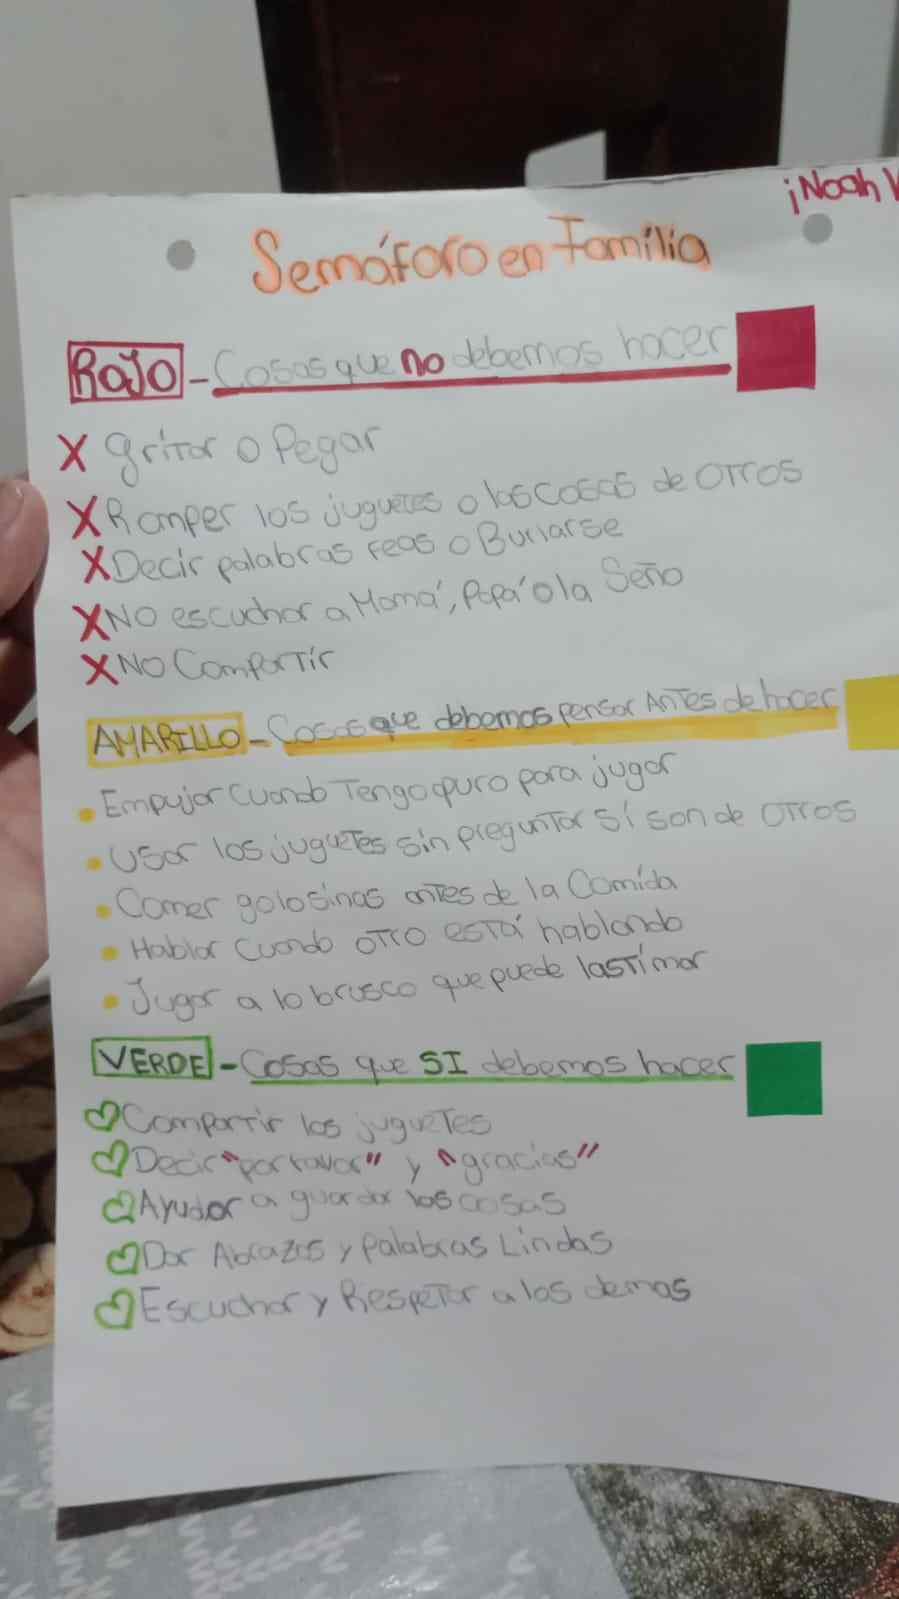 ¡Noah V
Semáforo en Familia
ROJO - Cosas que no debemos hacer
X Gritar o Pegar
X Romper los juguetes o las cosas de otros
X Decir palabras feas o Burlarse
X NO escuchar a Mamá, Papá o la Seño
X NO Compartir
AMARILLO - Cosas que debemos pensar Antes de hacer
• Empujar cuando Tengo apuro para jugar
• Usar los juguetes sin preguntar sí son de otros
• Comer golosinas antes de la Comida
• Hablar cuando otro está hablando
• Jugar a lo brusco que puede lastimar
VERDE - Cosas que SI debemos hacer
Compartir los juguetes
Decir "por favor" y "gracias"
Ayudar a guardar las cosas
Dar Abrazos y palabras Lindas
Escuchar y Respetar a los demas